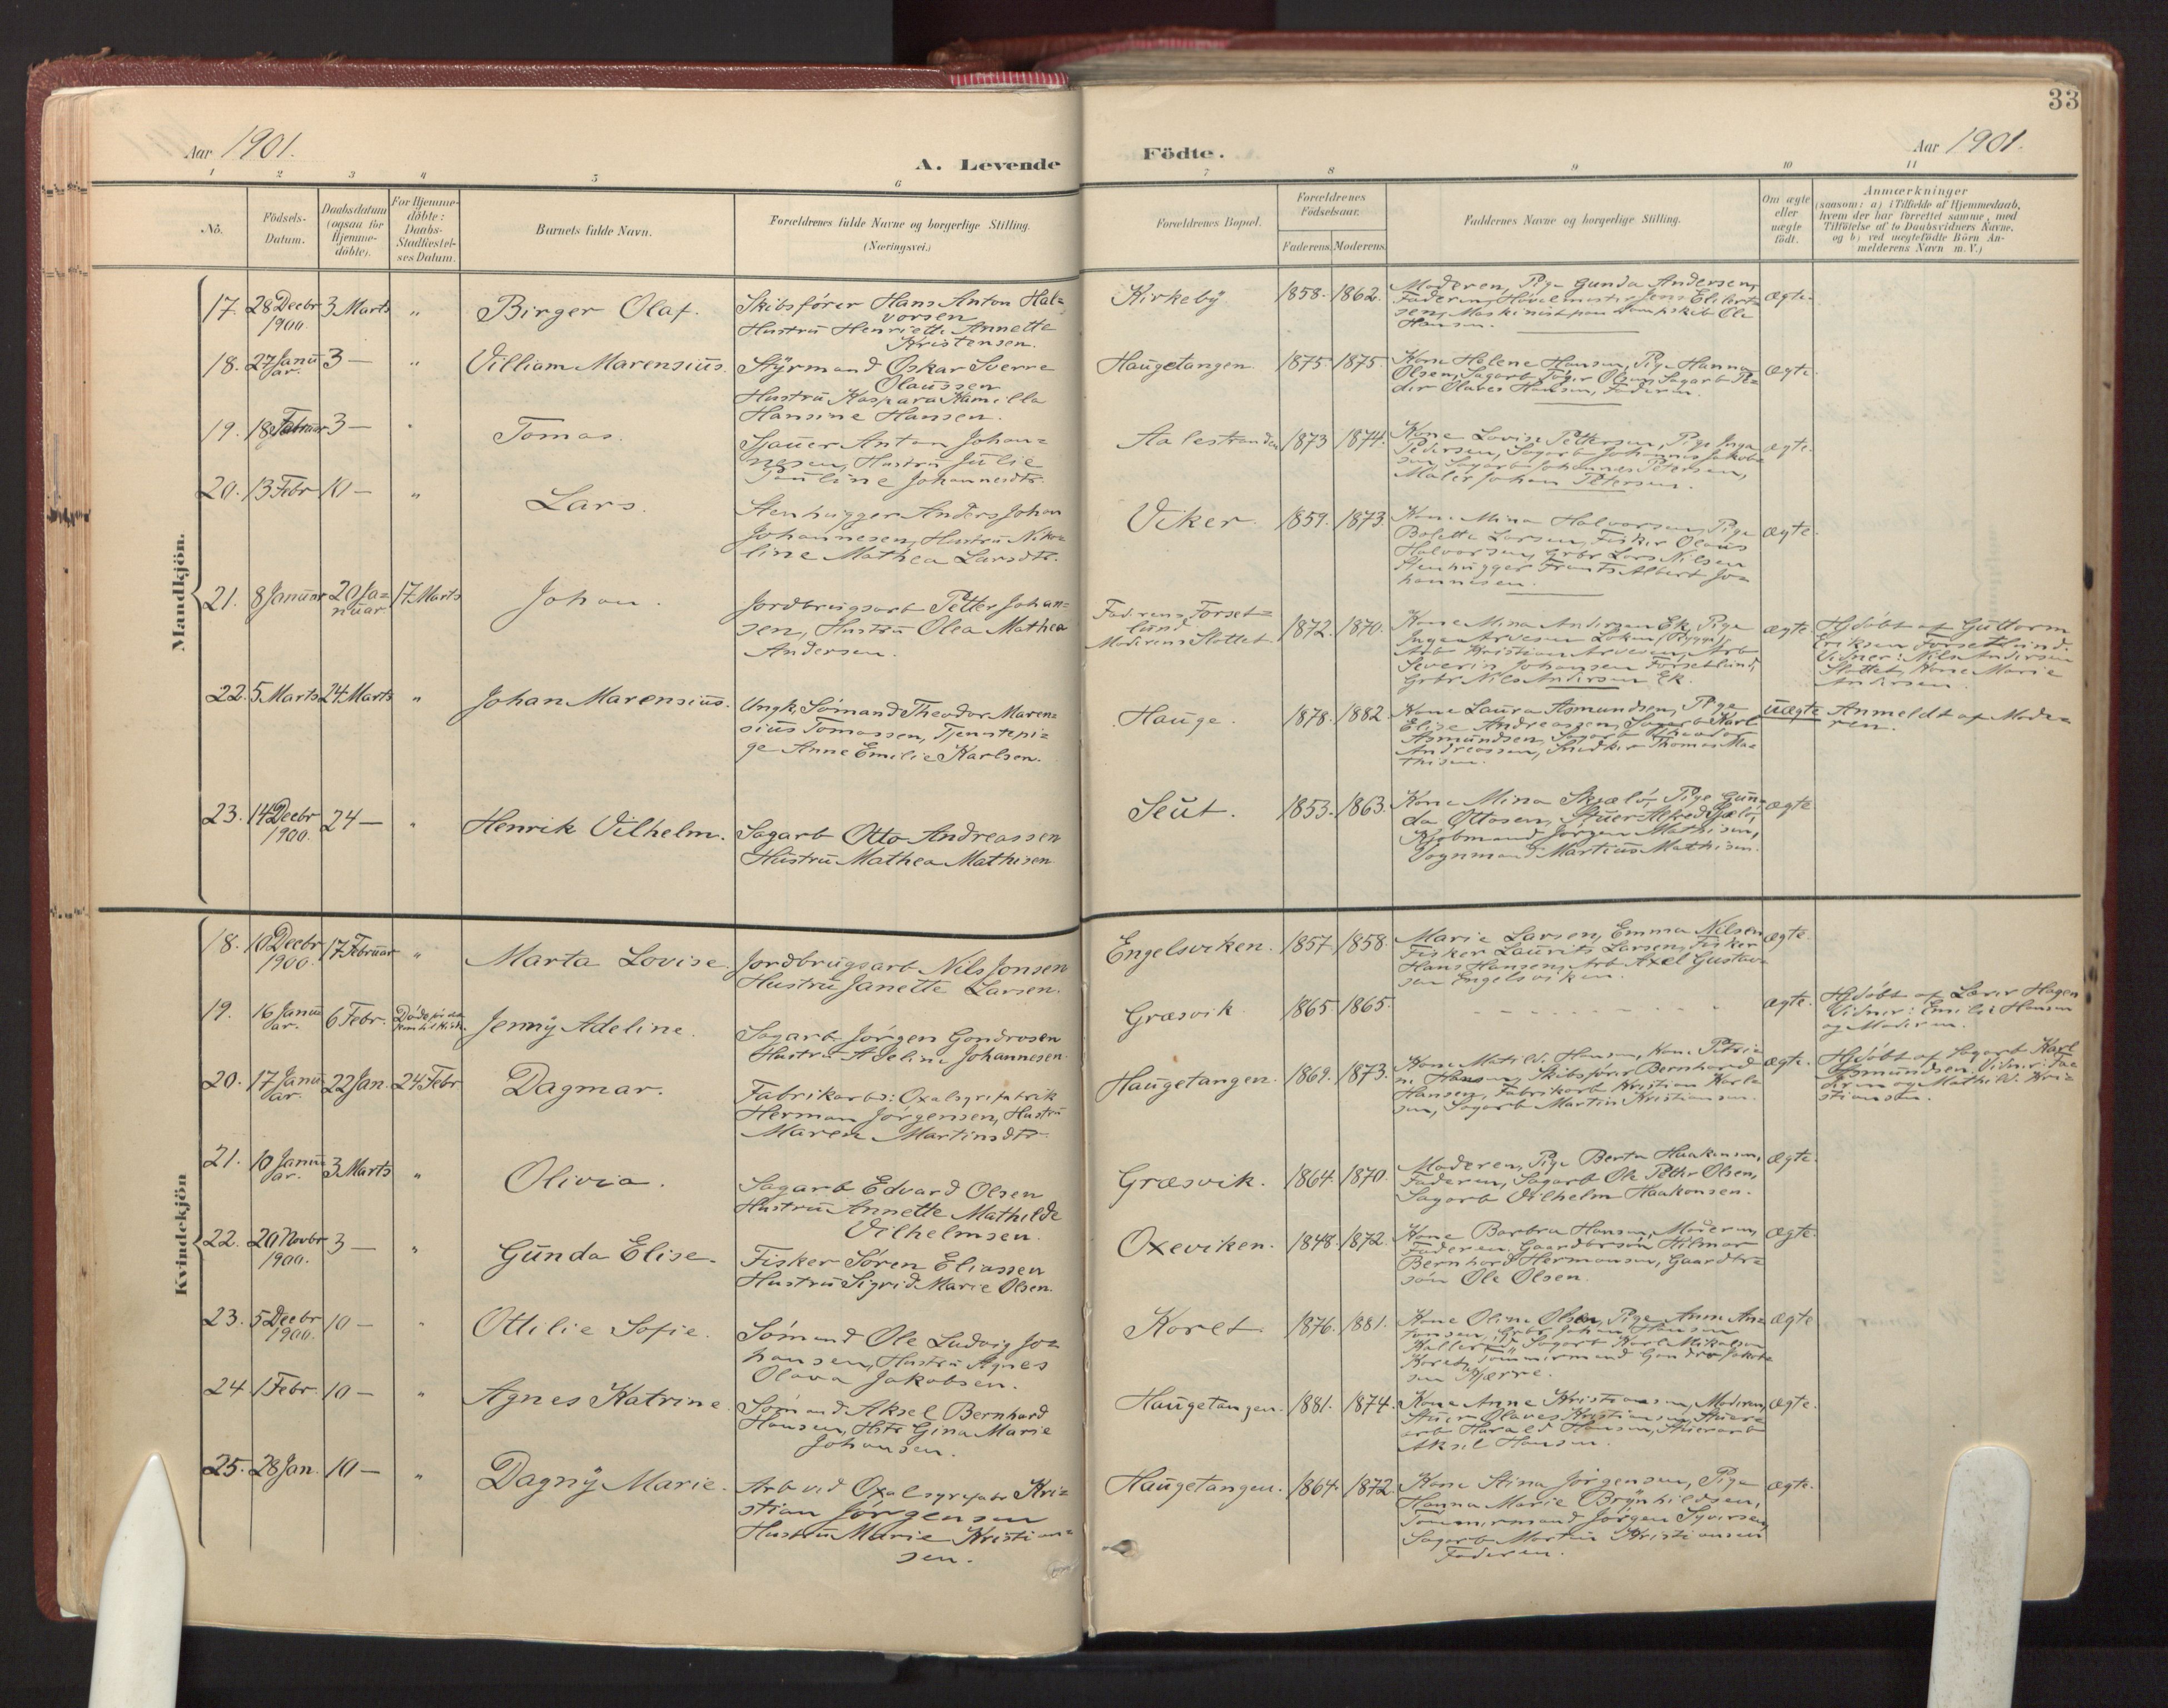 33
Aar 1901.
A. Levende
Födte.
Aar 1901.
1 2 3 4 5 6 7 8 9 10 11
No.
Födsels-
Datum.
Daabsdatum
(ogsaa for
Hjemme-
döbte).
For Hjemme-
döbte:
Daabs-
Stadfæstel-
ses Datum.
Barnets fulde Navn.
Forældrenes fulde Navne og borgerlige Stilling.
(Næringsvei.)
Forældrenes Bopæl.
Forældrenes
Födselsaar.
Faderens. Moderens.
Faddernes Navne og borgerlige Stilling.
Om ægte
eller
uægte
födt.
Anmærkninger
(saasom: a) i Tilfælde af Hjemmedaab,
hvem der har forrettet samme, med
Tilföielse af to Daabsvidners Navne,
og b) ved uægtefödte Börn An-
melderens Navn m. V.)
Mandkjön.
17. 28 Decbr 1900. 3 Marts „ Birger Olaf.
Skibsfører Hans Anton Hal-
vorsen
Hustru Henriette Annette
Kristensen.
Kirkeby 1858. 1862.
Moderen, Pige Gunda Andersen,
Faderen, Jens Eilert-
sen, Maskinist paa Dampskib Ole
Hansen.
ægte.
18. 27 Janu-
ar. 3 — „ Villiam Marensius.
Styrmand Oskar Sverre
Olaussen
Hustru Kaspara Kamilla
Hansine Hansen.
Haugetangen 1875. 1875.
Kone Helene Hansen, Pige Hanna
Olsen, Sagarb Olsen, Sagarb Pe-
der Olaves Hansen, Faderen.
ægte.
19. 18 Februar 3 — „ Tomas.
Sjauer Anton Johan-
nesen, Hustru Julie
Pauline Johannesdtr.
Aalestranden 1873 1874.
Kone Lovise Pettersen, Pige Inga
Pedersen, Sagarb Johannes Jakob-
sen, Sagarb Johannes Petersen,
Maler Johan Petersen.
ægte.
20. 13 Febr 10 — „ Lars.
Stenhugger Anders Johan
Johannesen, Hustru Niko-
line Mathea Larsdtr.
Viker. 1859. 1873.
Kone Mina Halvorsen, Pige
Bolette Larsen, Fisker Olaus
Halvorsen, Grbr Lars Nilsen
Stenhugger Frants Albert Jo-
hannesen.
ægte.
21. 8 Januar 20 Ja-
nuar 17 Marts Johan.
Jordbrugsarb Petter Johan-
sen, Hustru Olea Mathea
Andersen.
Faderens Torset-
lund
Moderens Slottet. 1872. 1870.
Kone Mina Andersen Ek, Pige
Arb Kristian Arvesen, Arb
Severin Johansen Torsetlund,
Grbr Nils Andersen Ek.
ægte.
Hjdöbt af Guttorm
Eriksen Torsetlund.
Vidner: Nils Andersen
Slottet, Kone Marie
Andersen.
22. 5 Marts 24 Marts „ Johan Marensius.
Ungk, Sömand Theodor Maren-
sius Tomassen, Tjenstepi-
ge Anne Emilie Karlsen.
Hauge. 1878. 1882
Kone Laura Asmundsen, Pige
Elise Andreassen, Sagarb Karl
Asmundsen, Sagarb Theodor
Andreassen, Snedker Thomas Ma-
thisen.
uægte
Anmeldt af Mode-
ren.
23. 14 Decbr
1900. 24 — „ Henrik Vilhelm.
Sagarb Otto Andreassen
Hustru Mathea Mathisen
Seut. 1853. 1863.
Kone Mina Skjælö, Pige Gun-
da Ottosen, Stuer Alfred Skjælö,
Kjöbmand Jörgen Mathisen,
Vognmand Martius Mathisen.
ægte
Kvindekjön
18. 10 Decbr
1900. 17 Februar „ Marta Lovise.
Jordbrugsarb Nils Jonsen
Hustru Janette Larsen.
Engelsviken. 1857 1858.
Marie Larsen, Emma Nilsen
Fisker Laurits Larsen, Fisker
Hans Hansen, Arb Axel Gustav-
sen Engelsviken.
ægte.
19. 16 Janu-
ar. 6 Febr. Döde Jenny Adeline.
Sagarb Jörgen Gundrosen
Hustru Adeline Johannesen.
Græsvik 1865. 1865.
ægte.
Hjdöbt af Lærer Hagen
Vidner: Emilie Hansen
og Moderen.
20. 17 Janu-
ar. 22 Jan. 24 Febr Dagmar.
Fabrikarb: Oxalsyrefabrik
Herman Jørgensen, Hustru
Maren Martinsdtr.
Haugetangen. 1869. 1873.
Kone Matilde Hansen, Kone Petri-
ne Hansen, Skibsfører Bernhard
Hansen, Fabrikarb Kristian Karl-
sen, Sagarb Martin Kristiansen.
ægte.
Hjdöbt af Sagarb Karl
Asmundsen. Vidner: Fa-
deren og Mathilde Kri-
stiansen.
21. 10 Janu-
ar. 3 Marts „ Olivia.
Sagarb Edvard Olsen
Hustru Annette Mathilde
Vilhelmsen.
Græsvik. 1864. 1870.
Moderen, Pige Berta Haakensen,
Faderen, Sagarb Ole Petter Olsen,
Sagarb Vilhelm Haakonsen.
ægte.
22. 20 Novbr
1900. 3 — „ Gunda Elise.
Fisker Sören Eliassen
Hustru Sigrid Marie Olsen.
Oxeviken. 1848. 1872
Kone Barbra Hansen, Moderen,
Faderen. Gaardbrsön Hilmar
Bernhard Hermansen, Gaardbr-
sön Ole Olsen.
ægte.
23. 5 Decbr
1900. 10 — „ Ottilie Sofie.
Sömand Ole Ludvig Jo-
hansen, Hustru Agnes
Olava Jakobsen.
Koret 1876. 1881.
Kone Oline Olsen, Pige Anna An-
tonsen, Grbr Johan Hansen
Sagarb Karl Mikalsen
Koret, Tömmermand Jakob-
sen Kjærre.
ægte
24 1 Febr. 10 — „ Agnes Katrine.
Sömand Aksel Bernhard
Hansen, Hstr Gina Marie
Johansen.
Haugetangen. 1881. 1874.
Kone Anne Kristiansen, Moderen,
Stuer Olaves Kristiansen, Stuer-
arb Harald Hansen, Stuerarb
Aksel Hansen.
ægte.
25. 28 Jan. 10 — „ Dagny Marie.
Arb ved Oxalsyrefabr Kri-
stian Jørgensen
Hustru Marie Kristian-
sen.
Haugetangen. 1864. 1872.
Kone Stina Jörgensen, Pige
Hanna Marie Brynhildsen,
Tömmermand Jörgen Syversen,
Sagarb Martin Kristiansen
Faderen.
ægte.